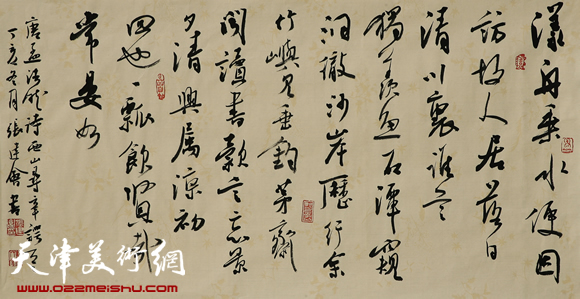 漾舟乘水便因
訪故人居落日
清川裏誰言
獨羨魚石潭窺
洞徹沙岸歷
竹嶼見垂釣茅齋
聞讀書款言忘景
夕清興屬涼初
回也一瓢飲賢哉
常晏如
唐孟浩然詩西山尋辛諤
丁亥冬月張建會書
天津美術網
www.022meishu.com